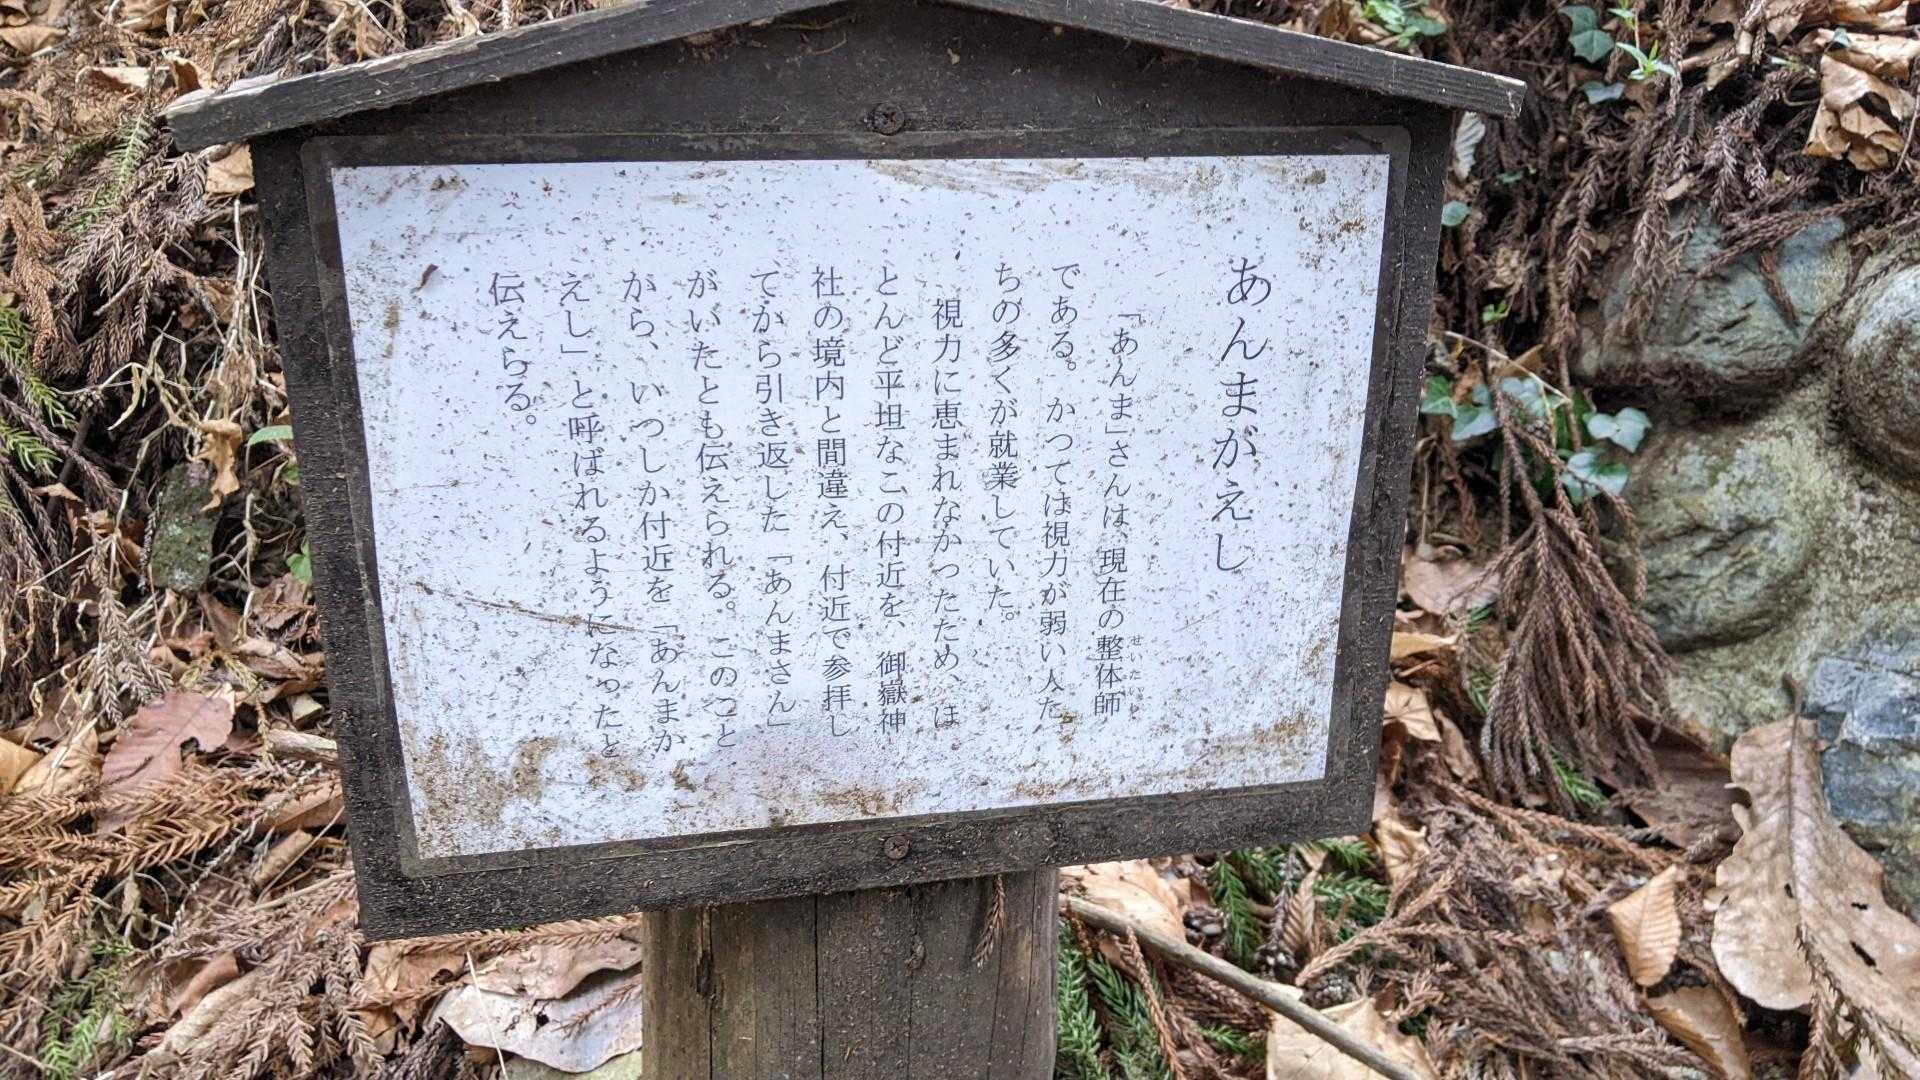 あんまがえし
「あんま」さんは、現在の整体師
せいたいし
である。かつては視力が弱い人た
ちの多くが就業していた。
視力に恵まれなかったため、ほ
とんど平坦なこの付近を、御嶽神
社の境内と間違え、付近で参拝し
てから引き返した「あんまさん」
がいたとも伝えられる。このこと
から、いつしか付近を「あんまか
えし」と呼ばれるようになったと
伝えらる。